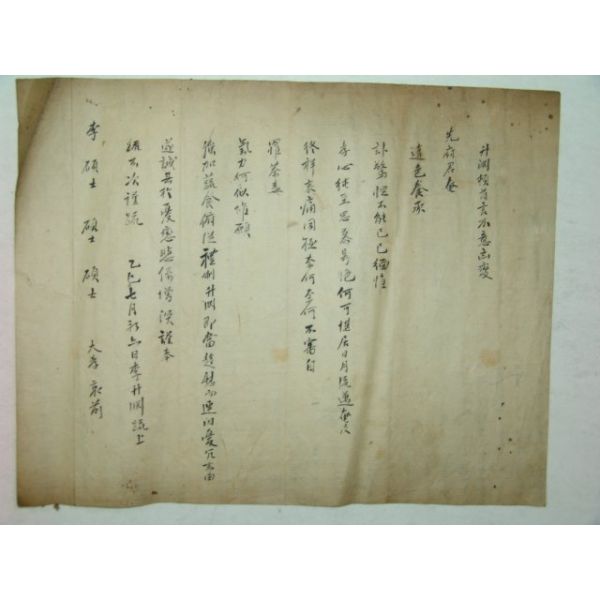 升淵頓首言不意凶變
先府君奄
違色養承
訃驚怛不能已已緬惟
孝心純至思慕號絶何可堪居日月流邁奄及
終祥哀痛罔極奈何奈何不審自
罹荼毒
氣力何似惟願
強加蔬食俯從禮制升淵卽當趨慰而連以憂冗末由
遂誠其於憂戀悲係增深謹奉
疏不次謹疏 乙巳七月初六日李升淵疏上
李碩士 碩士 碩士 大孝哀前